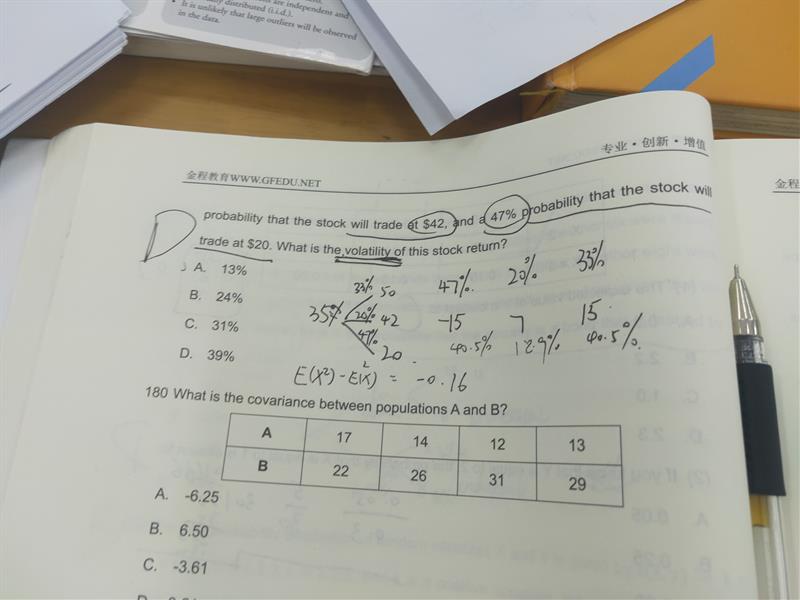 are independent and
distributed (i.i.d.).
• It is unlikely that large outliers will be observed
in the data.
金程教育WWW.GFEDU.NET
专业·创新·增值
金程
probability that the stock will trade at $42, and a 47% probability that the stock will
trade at $20. What is the volatility of this stock return?
D
A. 13%
B. 24%
C. 31%
D. 39%
33% 50
35 20% 42
47% 20
47% 20% 33%
-15 7 15
40.5% 12.9% 40.5%
E(X²)-E(X)² = -0.16
180 What is the covariance between populations A and B?
A 17 14 12 13
B 22 26 31 29
A. -6.25
B. 6.50
C. -3.61